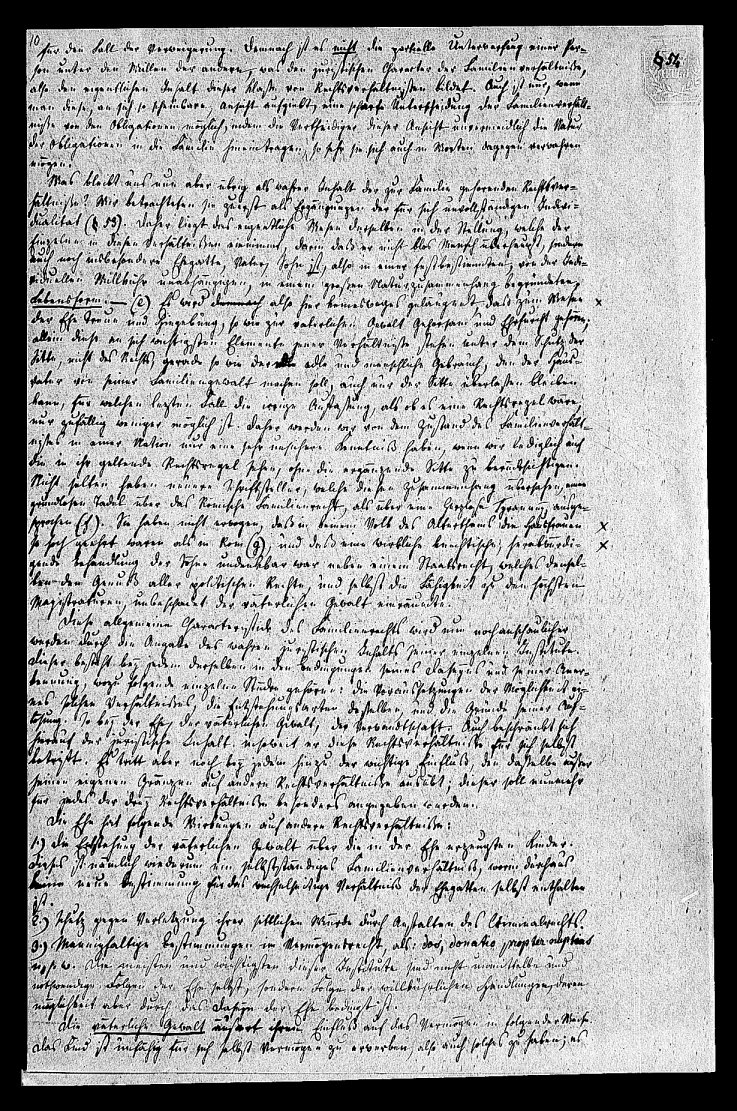 10
für den Fall der Verweigerung. Demnach ist es nicht die partielle Unterwerfung einer Per-
son unter den Willen der andern, was den juristischen Charakter der Familienverhältnisse,
also den eigentlichen Inhalt dieser Klasse von Rechtsverhältnissen bildet. Auch ist nur, wenn
man diese, an sich so scheinbare, Ansicht aufgiebt, eine scharfe Unterscheidung der Familienverhält-
nisse von den Obligationen möglich, indem die Vertheidiger dieser Ansicht unvermeidlich die Natur
der Obligationen in die Familie hineintragen, so sehr sie sich auch in Worten dagegen verwahren
mögen.
§ 54
Was bleibt uns nun aber übrig als wahrer Inhalt der zur Familie gehörenden Rechtsver-
hältnisse? Wir betrachteten sie zuerst als Ergänzungen der für sich unvollständigen Indivi-
dualität (§ 53). Daher liegt das eigentliche Wesen derselben in der Stellung, welche der
Einzelne in diesen Verhältnissen einnimmt, darin daß er nicht blos Mensch überhaupt, sondern
auch noch insbesondere Ehegatte, Vater, Sohn ist, also in einer festbestimmten, von der indi-
viduellen Willkühr unabhängigen, in einem großen Naturzusammenhang begründeten,
Lebensform. — (e) Es wird demnach also hier keinesweges geläugnet, daß zum Wesen
der Ehe Treue und Hingebung, so wie zur väterlichen Gewalt Gehorsam und Ehrfurcht gehören;
allein diese an sich wichtigsten Elemente jener Verhältnisse stehen unter dem Schutz der
Sitte, nicht des Rechts, gerade so wie der edle und menschliche Gebrauch, den der Haus-
vater von seiner Familiengewalt machen soll, auch nur der Sitte überlassen bleiben
kann, für welchen letzten Fall die irrige Auffassung, als ob es eine Rechtsregel wäre,
nur zufällig weniger möglich ist. Daher werden wir von dem Zustand des Familienverhält-
nisses in einer Nation nur eine sehr unsichere Kenntniß haben, wenn wir lediglich auf
die in ihr geltende Rechtsregel sehen, ohne die ergänzende Sitte zu berücksichtigen.
Nicht selten haben neuere Schriftsteller, welche diesen Zusammenhang übersahen, einen
grundlosen Tadel über das Römische Familienrecht, als über eine herzlose Tyranney, ausge-
sprochen (f). Sie haben nicht erwogen, daß in keinem Volk des Alterthums die Hausfrauen
so hoch geehrt waren als in Rom (g), und daß eine wirkliche knechtische, herabwürdi-
gende Behandlung der Söhne undenkbar war neben einem Staatsrecht, welches densel-
ben den Genuß aller politischen Rechte, und selbst die Fähigkeit zu den höchsten
Magistraturen, unbeschadet der väterlichen Gewalt einräumte.
Diese allgemeine Charakteristik des Familienrechts wird nun noch anschaulicher
werden durch die Angabe des wahren juristischen Inhalts seiner einzelnen Institute.
Dieser besteht bey jedem derselben in den Bedingungen seines Daseyns und seiner Aner-
kennung, wozu folgende einzelne Stücke gehören: die Voraussetzungen der Möglichkeit ei-
nes solchen Verhältnisses, die Entstehungsarten desselben, und die Gründe seiner Auf-
lösung. So bey der Ehe, der väterlichen Gewalt, der Verwandtschaft. Auch beschränkt sich
hierauf der juristische Inhalt, insoweit er diese Rechtsverhältnisse für sich selbst
betrifft. Es tritt aber noch bey jedem hinzu der wichtige Einfluß, den dasselbe außer
seinen eigenen Gränzen auf andere Rechtsverhältnisse ausübt; dieser soll nunmehr
für jedes der drey Rechtsverhältnisse besonders angegeben werden.
Die Ehe hat folgende Wirkungen auf andere Rechtsverhältnisse:
1.) Die Entstehung der väterlichen Gewalt über die in der Ehe erzeugten Kinder.
Dieses ist nämlich wiederum ein selbstständiges Familienverhältniß, worin durchaus
keine neue Bestimmung für das wechselseitige Verhältniß der Ehegatten selbst enthalten
ist.
2.) Schutz gegen Verletzung ihrer sittlichen Würde durch Anstalten des Criminalrechts.
3.) Mannigfaltige Bestimmungen im Vermögensrecht, als: dos, donatio propter nuptias
u. s. w. Die meisten und wichtigsten dieser Institute sind nicht unmittelbar und
nothwendige Folgen der Ehe selbst, sondern Folge der willkührlichen Handlungen, deren
Möglichkeit aber durch das Daseyn der Ehe bedingt ist.
Die väterliche Gewalt äußert ihren Einfluß auf das Vermögen in folgender Weise.
Das Kind ist unfähig für sich selbst Vermögen zu erwerben, also auch solches zu haben; es